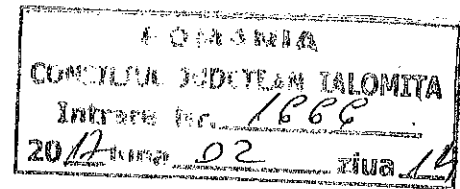 ROMÂNIA
CONSILIUL JUDEȚEAN IALOMIȚA
Intrare Nr. 1666
20 luna 02 ziua